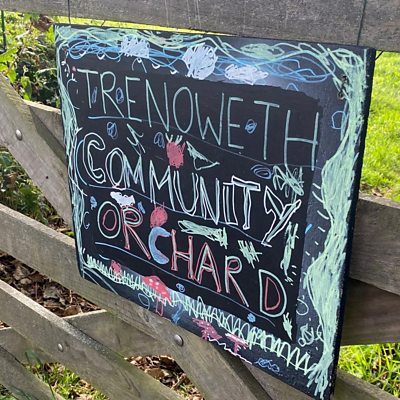 TRENOWETH
COMMUNITY
ORCHARD